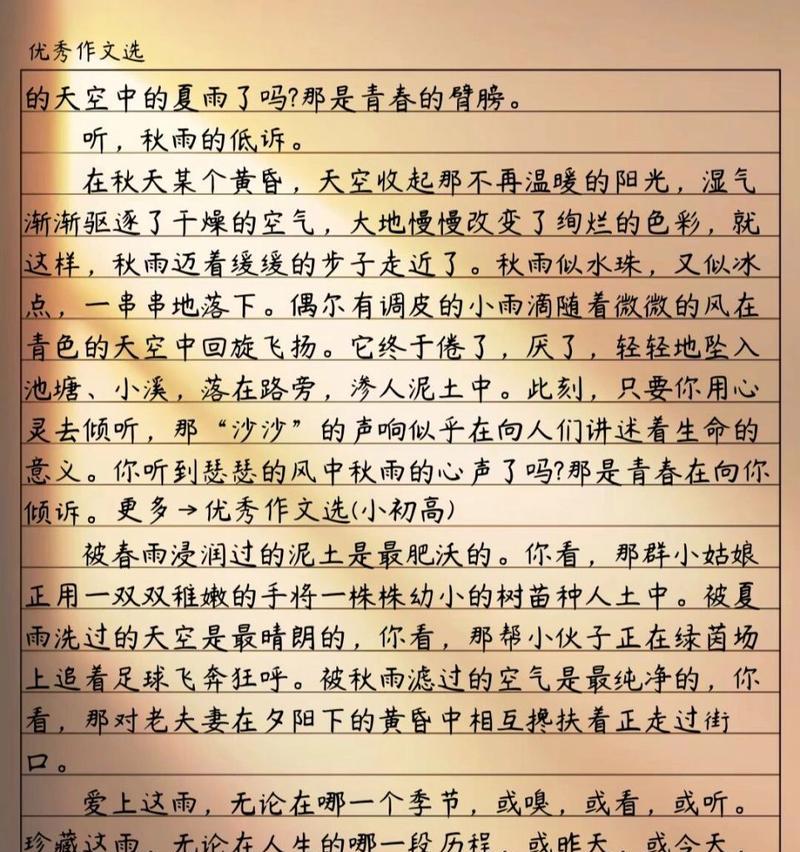 优秀作文选
的天空中的夏雨了吗?那是青春的臂膀。
听，秋雨的低诉。
在秋天某个黄昏，天空收起那不再温暖的阳光，湿气
渐渐驱逐了干燥的空气，大地慢慢改变了绚烂的色彩，就
这样，秋雨迈着缓缓的步子走近了。秋雨似水珠，又似冰
点，一串串地落下。偶尔有调皮的小雨滴随着微微的风在
青色的天空中回旋飞扬。它终于倦了，厌了，轻轻地坠入
池塘、小溪，落在路旁，渗人泥土中。此刻，只要你用心
灵去倾听，那“沙沙”的声响似乎在向人们讲述着生命的
意义。你听到瑟瑟的风中秋雨的心声了吗?那是青春在向你
倾诉。更多→优秀作文选(小初高)
被春雨浸润过的泥土是最肥沃的。你看，那群小姑娘
正用一双双稚嫩的手将一株株幼小的树苗种人土中。被夏
雨洗过的天空是最晴朗的，你看，那帮小伙子正在绿茵场
上追着足球飞奔狂呼。被秋雨滤过的空气是最纯净的，你
看，那对老夫妻在夕阳下的黄昏中相互搀扶着正走过街
口。
爱上这雨，无论在哪一个季节，或嗅，或看，或听。
珍藏这雨，无论在人生的哪一段历程，或昨天，或今天，